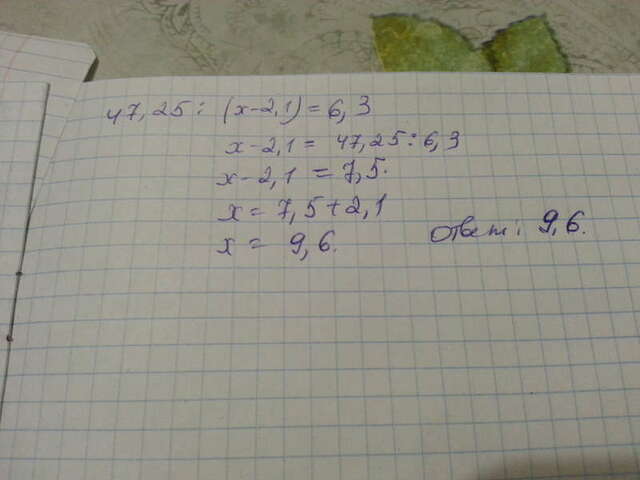 47,25 : (x-2,1) = 6,3
x-2,1 = 47,25 : 6,3
x-2,1 = 7,5.
x = 7,5+2,1
x = 9,6.
Ответ: 9,6.